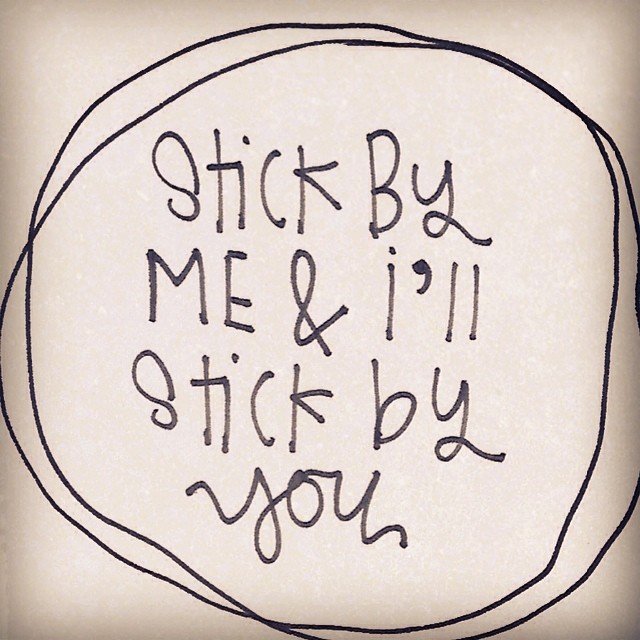 Stick By
ME & i'll
Stick by
you